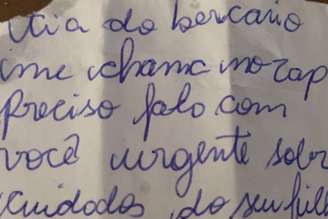 tia do bercario
me chama no zap
Preciso falo com
você urgente sobr
cuidados do seu fil